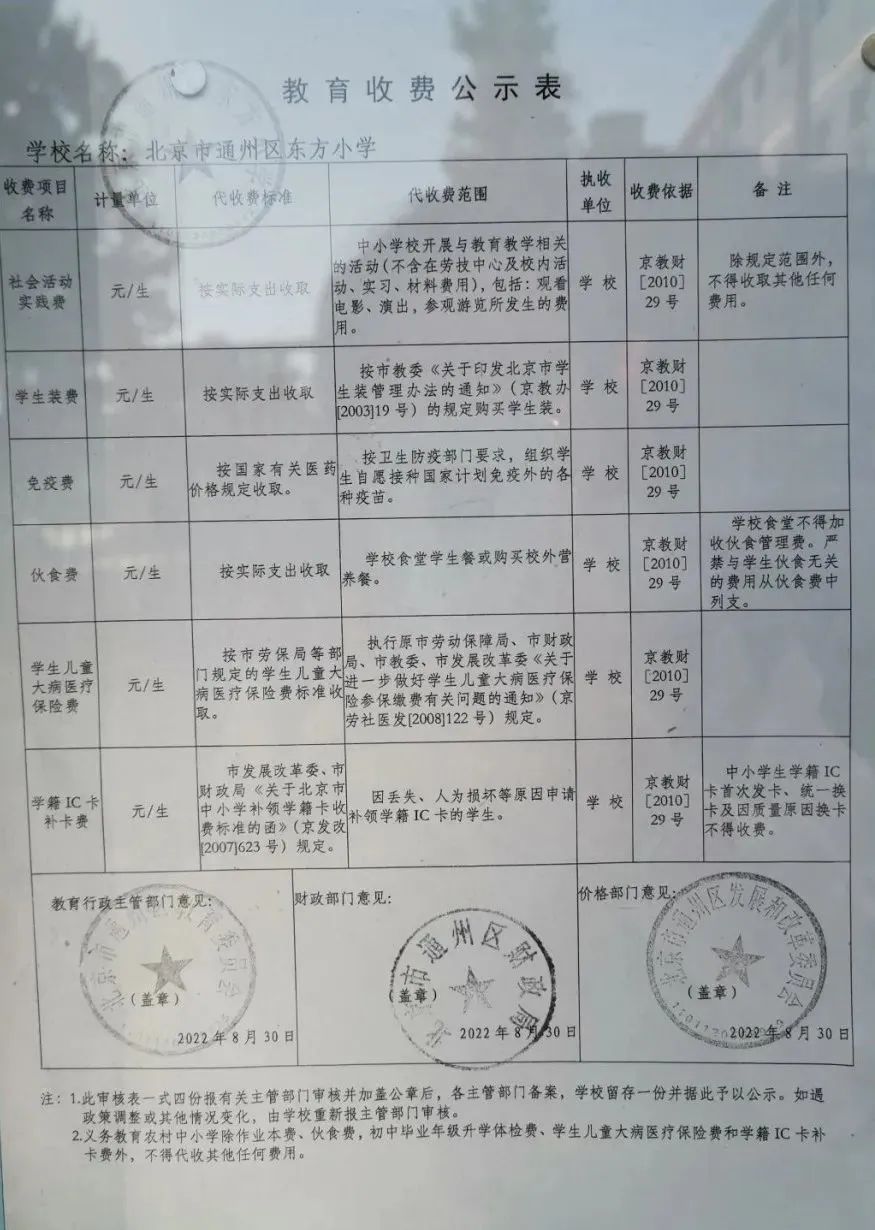 教育收费公示表
学校名称：北京市通州区东方小学
收费项目
名称
计量单位
代收费标准
代收费范围
执收
单位
收费依据
备 注
社会活动
实践费
元/生
按实际支出收取
中小学校开展与教育教学相关
的活动（不含在劳技中心及校内活
动、实习、材料费用），包括：观看
电影、演出，参观游览所发生的费
用。
学 校
京教财
[2010]
29 号
除规定范围外，
不得收取其他任何
费用。
学生装费
元/生
按实际支出收取
按市教委《关于印发北京市学
生装管理办法的通知》（京教办
[2003]19 号）的规定购买学生装。
学 校
京教财
[2010]
29 号
免疫费
元/生
按国家有关医药
价格规定收取。
按卫生防疫部门要求，组织学
生自愿接种国家计划免疫外的各
种疫苗。
学 校
京教财
[2010]
29 号
伙食费
元/生
按实际支出收取
学校食堂学生餐或购买校外营
养餐。
学 校
京教财
[2010]
29 号
学校食堂不得加
收伙食管理费。严
禁与学生伙食无关
的费用从伙食费中
列支。
学生儿童
大病医疗
保险费
元/生
按市劳保局等部
门规定的学生儿童大
病医疗保险费标准收
取。
执行原市劳动保障局、市财政
局、市教委、市发展改革委《关于
进一步做好学生儿童大病医疗保
险参保缴费有关问题的通知》（京
劳社医发[2008]122 号）规定。
学 校
京教财
[2010]
29 号
学籍 IC 卡
补卡费
元/生
市发展改革委、市
财政局《关于北京市
中小学补领学籍卡收
费标准的函》（京发改
[2007]623 号）规定。
因丢失、人为损坏等原因申请
补领学籍 IC 卡的学生。
学 校
京教财
[2010]
29 号
中小学生学籍 IC
卡首次发卡、统一换
卡及因质量原因换卡
不得收费。
教育行政主管部门意见：
北京市通州区教育委员会
（盖章）
2022 年 8 月 30 日
财政部门意见：
北京市通州区财政局
（盖章）
2022 年 8 月 30 日
价格部门意见：
北京市通州区发展和改革委员会
（盖章）
2022 年 8 月 30 日
注：1.此审核表一式四份报有关主管部门审核并加盖公章后，各主管部门备案，学校留存一份并据此予以公示。如遇
政策调整或其他情况变化，由学校重新报主管部门审核。
2.义务教育农村中小学除作业本费、伙食费，初中毕业年级升学体检费、学生儿童大病医疗保险费和学籍 IC 卡补
卡费外，不得代收其他任何费用。